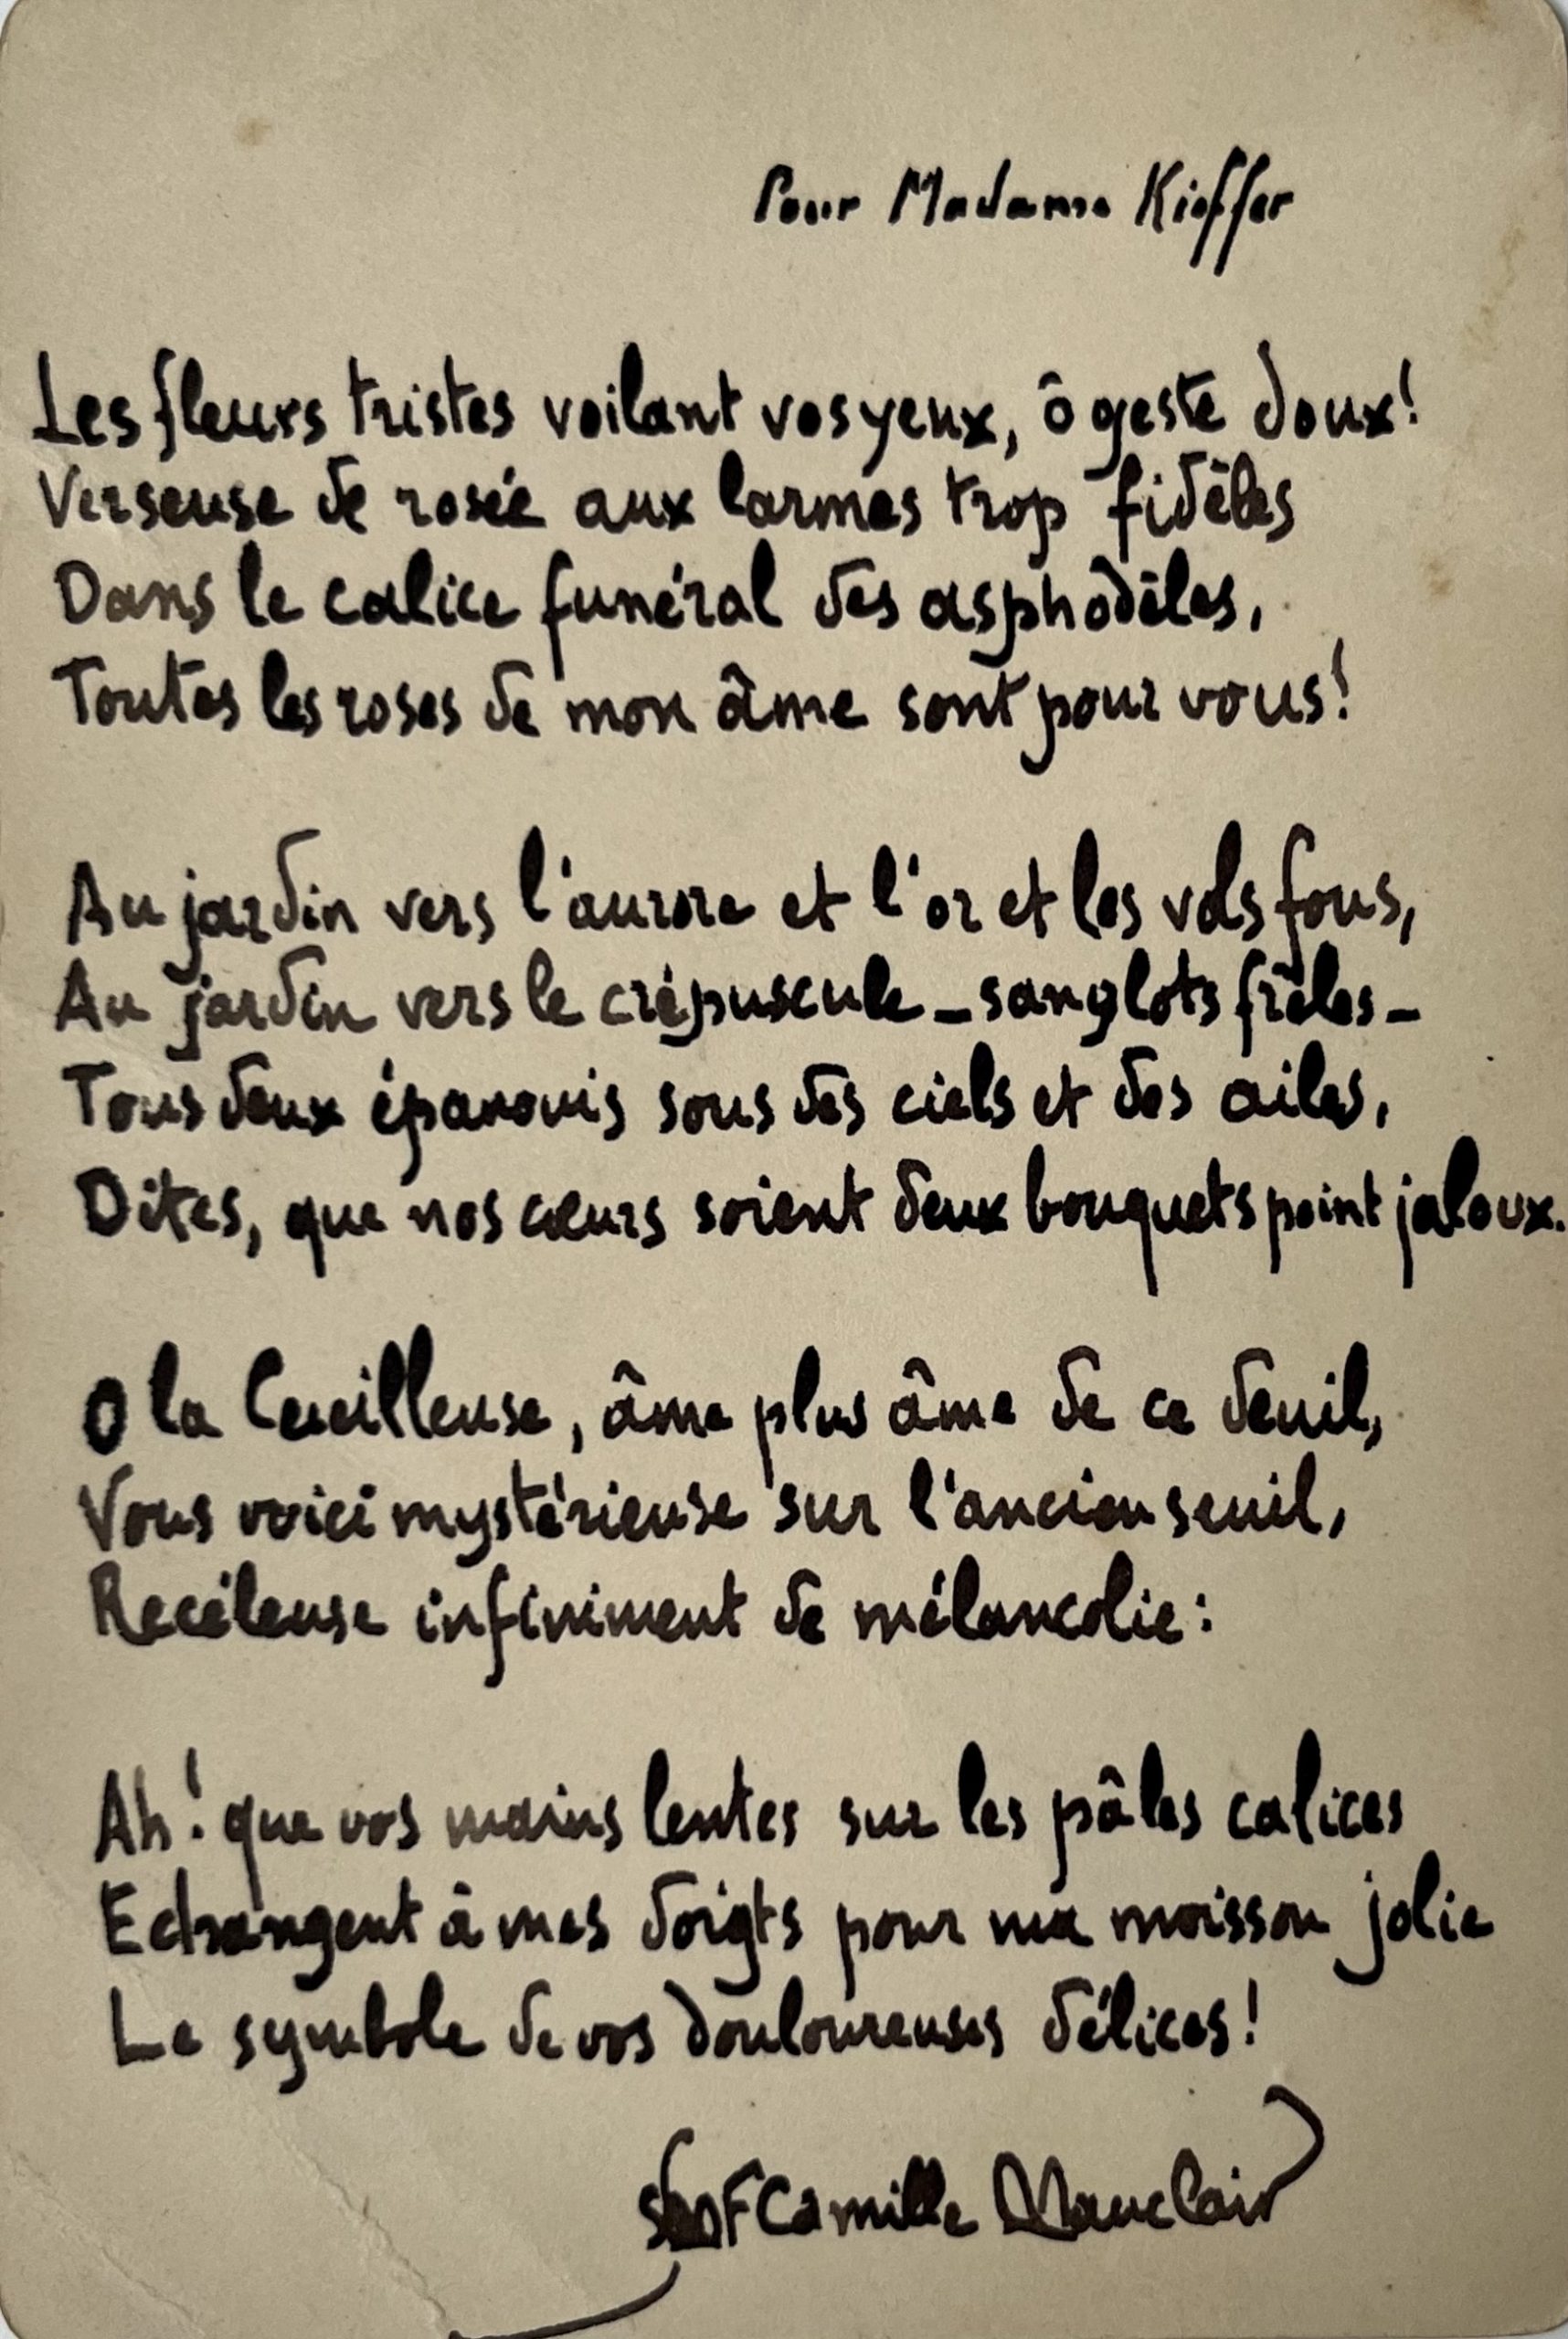 Pour Madame Kieffer
Les fleurs tristes voilant vos yeux, ô geste doux!
Verseuse de rosée aux larmes trop fidèles
Dans le calice funéral des asphodèles,
Toutes les roses de mon âme sont pour vous!
Au jardin vers l'aurore et l'or et les vols fous,
Au jardin vers le crépuscule _ sanglots frêles _
Tous deux épanouis sous des ciels et des ailes,
Dites, que nos cœurs soient deux bouquets point jaloux.
O la Cueilleuse, âme plus âme de ce deuil,
Vous voici mystérieuse sur l'ancien seuil,
Recéleuse infiniment de mélancolie:
Ah! que vos mains lentes sur les pâles calices
Echangent à mes doigts pour ma moisson jolie
Le symbole de vos douloureuses délices!
Camille Mauclair